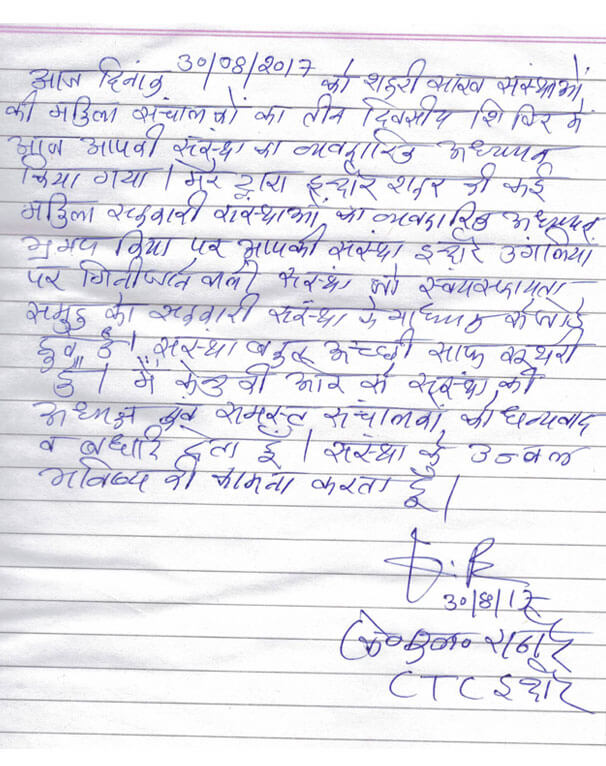 आज दिनांक 30/08/2017 को शहरी साख संस्थाओं
की महिला संचालकों का तीन दिवसीय शिविर में
आज आपकी संस्था का व्यवहारिक अध्ययन
किया गया। मेरे द्वारा इन्दौर शहर की कई
महिला सहकारी संस्थाओं का व्यवहारिक अध्ययन
भ्रमण किया पर आपकी संस्था इन्दौर उंगलियों
पर गिनी जाने वाली संस्था जो स्वयं सहायता
समुह को सहकारी संस्था के माध्यम से जोड़े
हुए है। संस्था बहुत अच्छी साफ सुथरी
है। मैं केन्द्र की ओर से संस्था की
अध्यक्ष एवं समस्त संचालकों को धन्यवाद
व बधाई देता हूँ। संस्था के उज्वल
भविष्य की कामना करता हूँ।
30/8/17
CTC इन्दौर